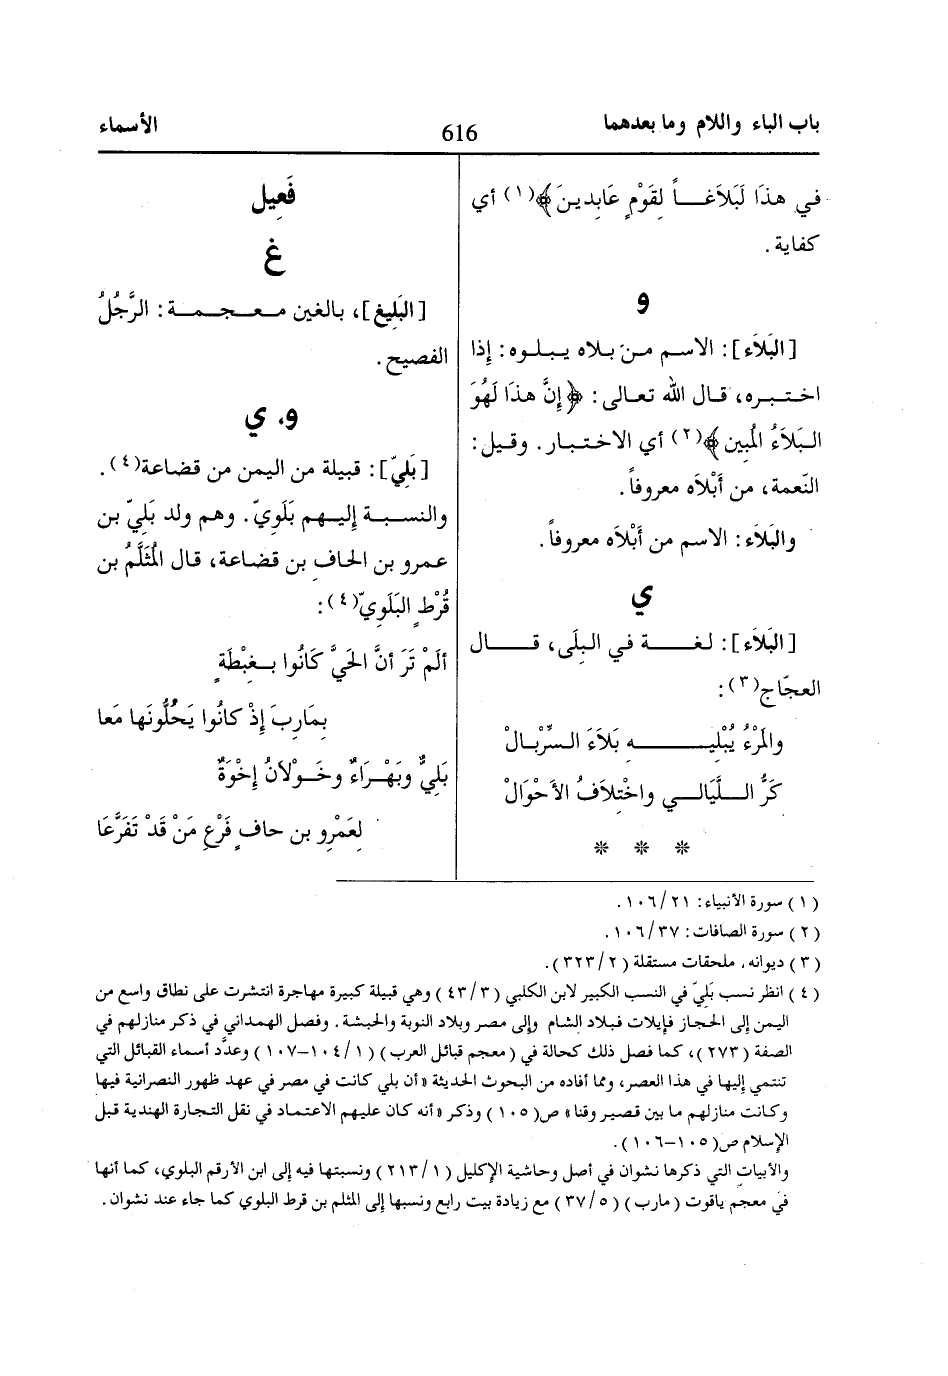 باب الباء واللام وما بعدهما
616
الأسماء
في هذَا لَبَلَاغــاً لِقَوْمٍ عَابِدينَ﴾(١) أي
كفاية .
و
[البَلَاَء] : الاسم مـن بـلاه يبـلوه : إذا
اختـبـره، قـال الله تعـالى : ﴿إِنَّ هذَا لَهُوَ
الـبَلَاءُ المُبِين﴾(٢) أي الاختـبـار . وقـيل :
النّعمة، من أَبْلَاَه معروفاً .
والبَلَاَء : الاسم من أَبْلَاَه معروفاً .
ي
[البَلَاَء] : لغـــة في البِلَى، قـــال
العجّاج(٣) :
والمَرْءُ يُبْليـــــه بَلَاَءَ السِّرْبالْ
كَرُّ الـلَّيَالـي واخْتِلَافُ الأَحْوَالْ
* * *
فَعِيل
غ
[البَلِيغ]، بالغين مـعـجـمـة : الرَّجُلُ
الفصيح .
و، ي
[بَلِيّ] : قبيلة من اليمن من قضاعة(٤) .
والنسبـة إليـهم بَلَويّ . وهم ولد بَلِيّ بن
عمرو بن الحافِ بن قضاعة، قال المُثَلَّمُ بن
قُرْطٍ البَلَويّ(٤) :
ألَمْ تَرَ أنَّ الحَيَّ كَانُوا بـغِبْطَةٍ
بِمَارِبَ إِذْ كانُوا يَحُلُّونَها مَعا
بَلِيٌّ وبَهْـرَاءٌ وخَـوْلانُ إِخْوَةٌ
لِعَمْرِو بن حافٍ فَرْعِ مَنْ قَدْ تَفَرَّعَا
(١) سورة الأنبياء : ٢١/ ١٠٦ .
(٢) سورة الصافات : ٣٧/ ١٠٦ .
(٣) ديوانه، ملحقات مستقلة (٢/ ٣٢٣) .
(٤) انظر نسب بَلِيّ في النسب الكبير لابن الكلبي (٣/ ٤٣) وهي قبيلة كبيرة مهاجرة انتشرت على نطاق واسع من
اليمن إلى الحجاز فإيلات فبلاد الشام وإلى مصر وبلاد النوبة والحبشة . وفصل الهمداني في ذكر منازلهم في
الصفة (٢٧٣)، كما فصل ذلك كحالة في (معجم قبائل العرب) (١/ ١٠٤-١٠٧) وعدَّد أسماء القبائل التي
تنتمي إليها في هذا العصر، ومما أفاده من البحوث الحديثة «أن بلي كانت في مصر في عهد ظهور النصرانية فيها
وكانت منازلهم ما بين قصير وقنا» ص(١٠٥) وذكر «أنه كان عليهم الاعتماد في نقل التجارة الهندية قبل
الإسلام ص(١٠٥-١٠٦) .
والأبيات التي ذكرها نشوان في أصل وحاشية الإكليل (١/ ٢١٣) ونسبتها فيه إلى ابن الأرقم البلوي، كما أنها
في معجم ياقوت (مارب) (٥/ ٣٧) مع زيادة بيت رابع ونسبها إلى المثلم بن قرط البلوي كما جاء عند نشوان .